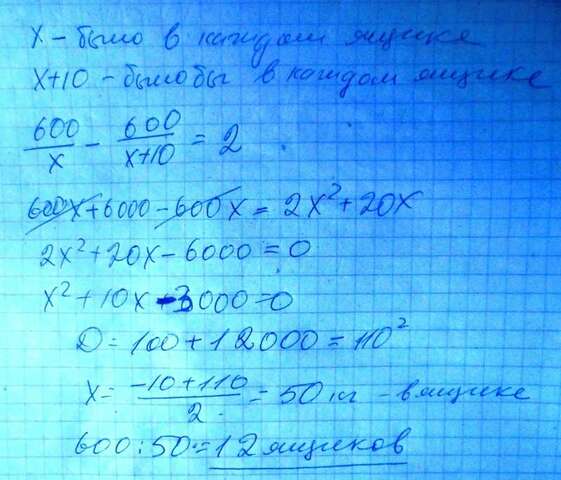 x - было в каждом ящике
x+10 - было бы в каждом ящике
600/x - 600/x+10 = 2
600x+6000-600x = 2x²+20x
2x²+20x-6000=0
x²+10x-3000=0
D=100+12000=110²
x= -10+110/2 = 50 кг - в ящике
600:50=12 ящиков